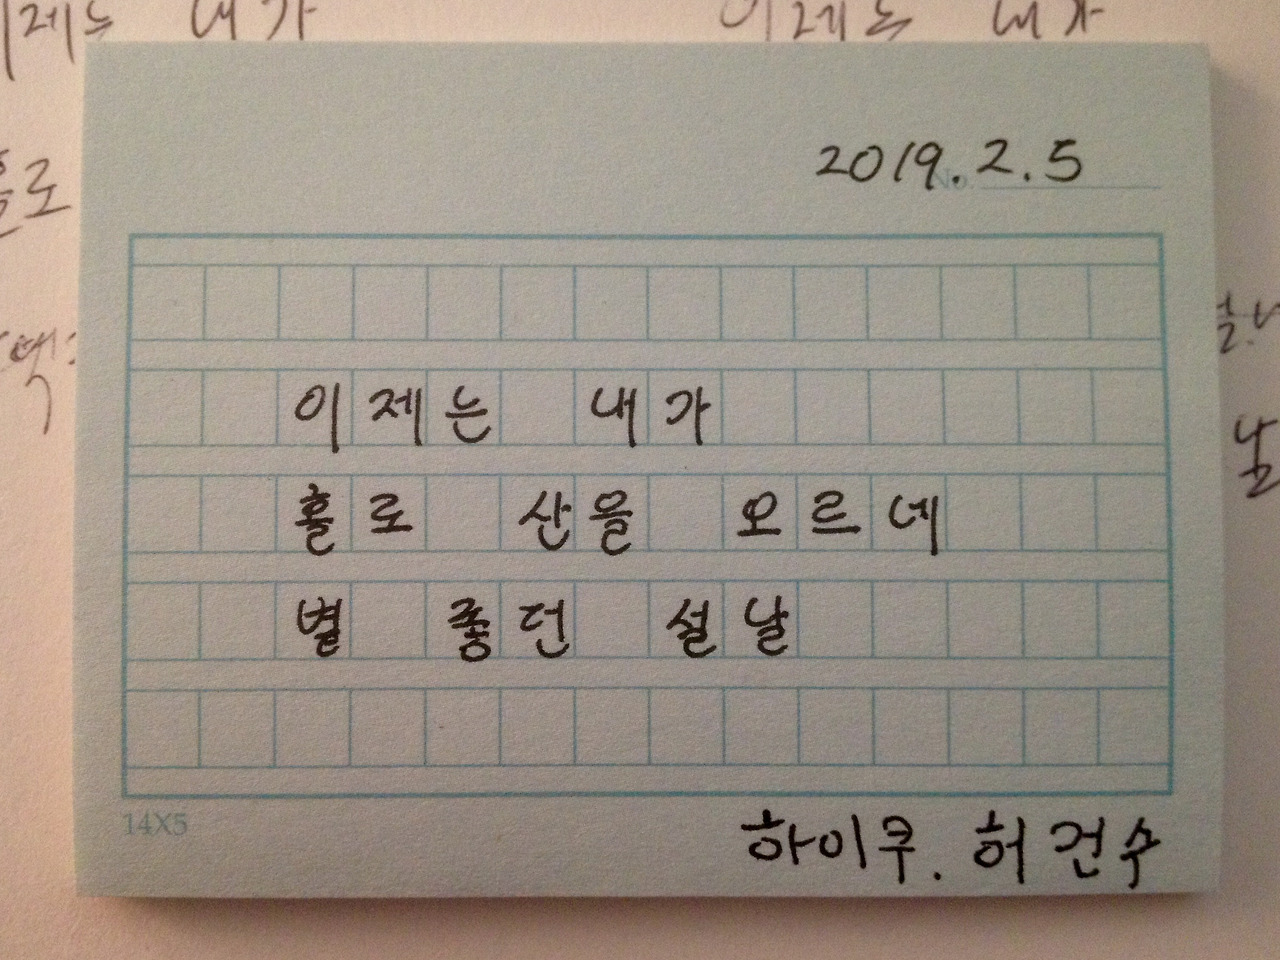 이제는 내가
이제는 내가
홀로
2019.2.5
No.
이제는 내가
홀로 산을 오르네
별 좋던 설날
14X5
하이쿠. 허건수